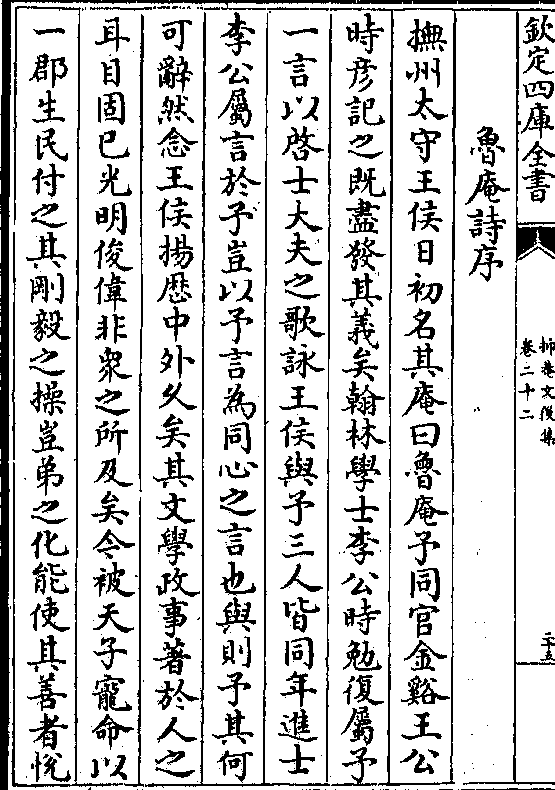 欽定四庫全書
抑菴文後集
卷二十二
二十五
魯庵詩序
撫州太守王侯日初名其庵曰魯庵予同官金谿王公
時彦記之既盡發其義矣翰林學士李公時勉復屬予
一言以啓士大夫之歌詠王侯與予三人皆同年進士
李公屬言於予豈以予言為同心之言也與則予其何
可辭然念王侯揚歴中外久矣其文學政事著於人之
耳目固已光明俊偉非衆之所及矣今被天子寵命以
一郡生民付之其剛毅之操豈弟之化能使其善者悅